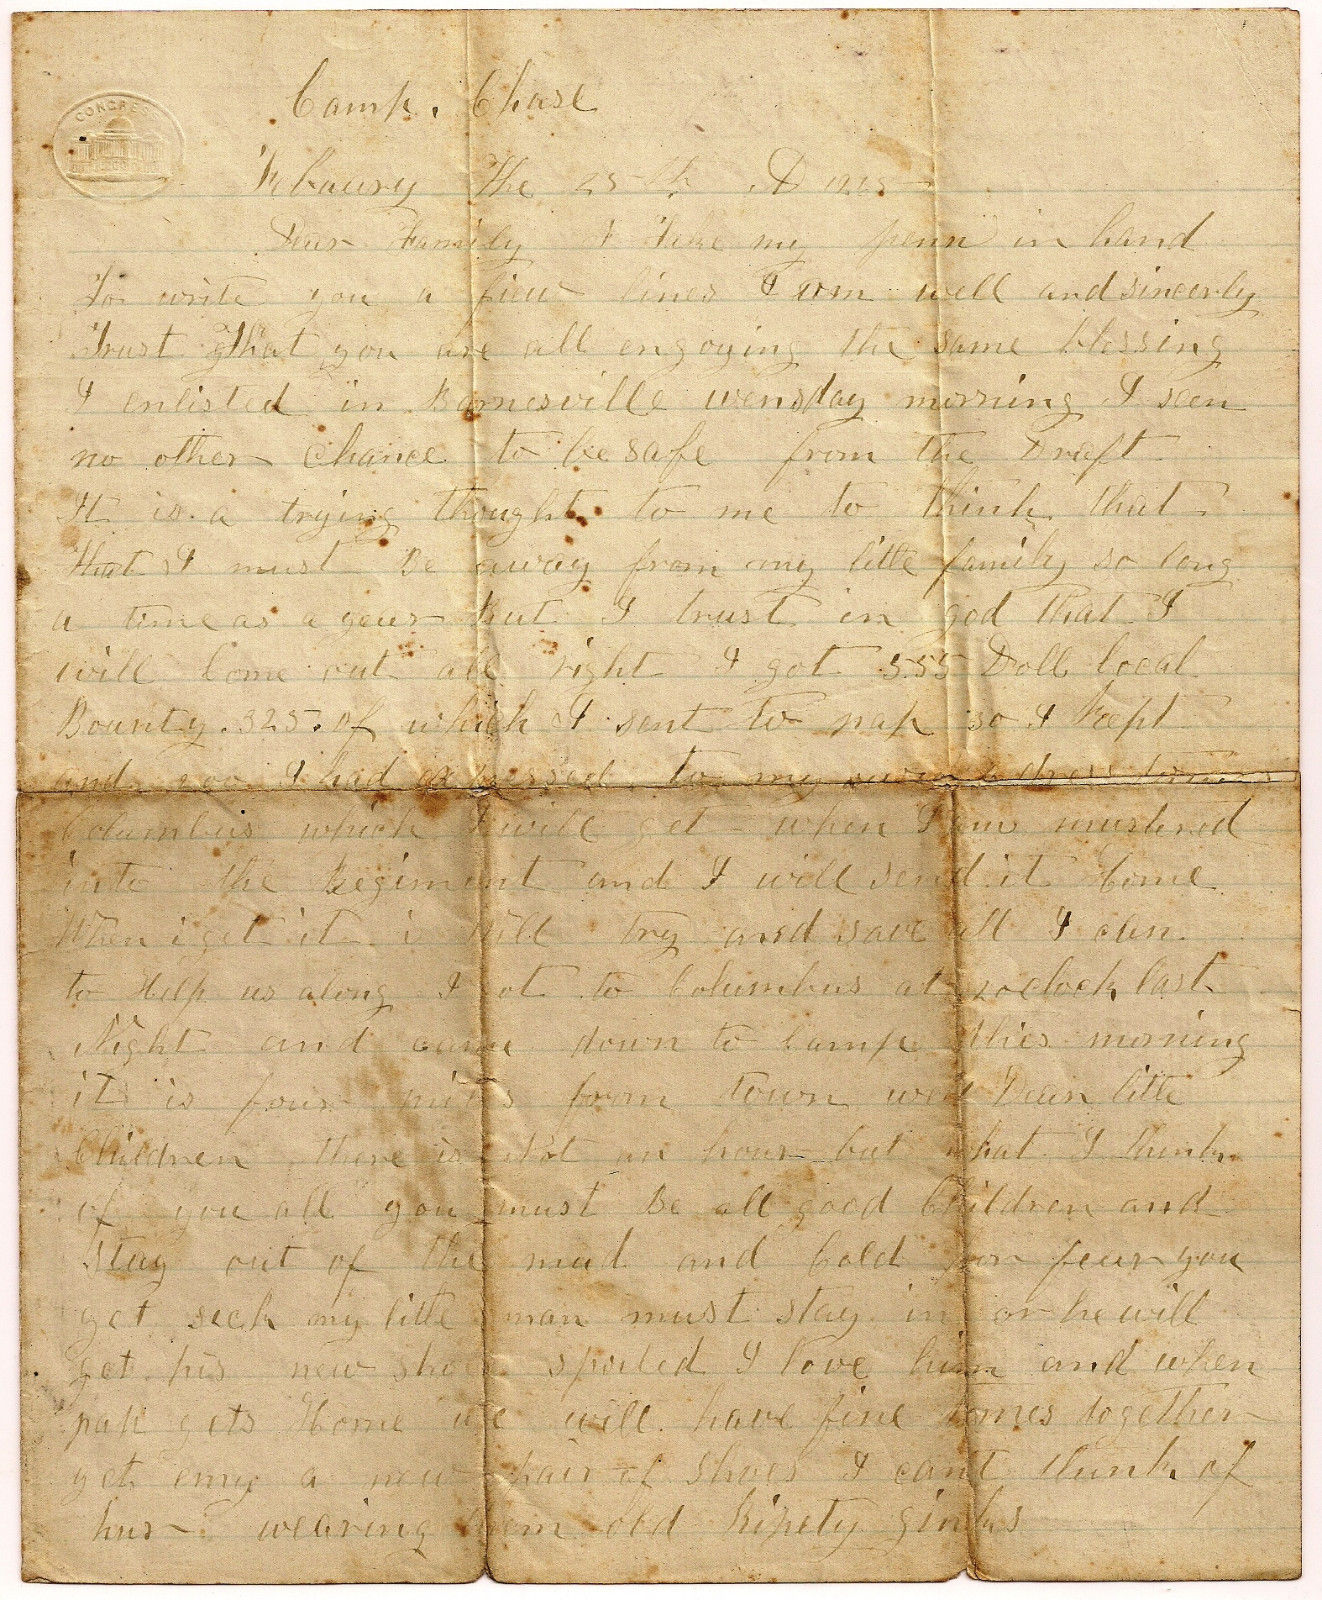 CONGRESS
Camp. Chase
Febaury The 25th . A D 1865
Dear Family I Take my penn in hand
To write you a fiew lines I am well and sincerly
Trust That you are all engoying the same blessing
I enlisted in Barnesville wensday morning I seen
no other chance to be safe from the Draft
It is a trying thought to me to think that
that I must be away from my little family so long
a time as a year But I trust in god that I
will Come out all right I got 555 Doll local
Bounty. 325. of which I sent to pap so I kept
and 200 I had expressed to my own
Columbus which I will get when I am mustered
into the Regiment and I will send it Come
When i get it i will try and save all I can
to Help us along I ot to Columbus at 2 oclock last
Night and came down to Camp this morning
it is four miles from town well Dear little
Children there is Not an hour but what I think
of you all you must Be all good Children and
Stay out of the mud and Cold for fear you
get seck my little man must stay in or he will
get his new shoes spoiled I love him and when
pap gets Home we will have fine times together
get emy a new pair of Shoes I cant think of
hur wearing them old Ripety